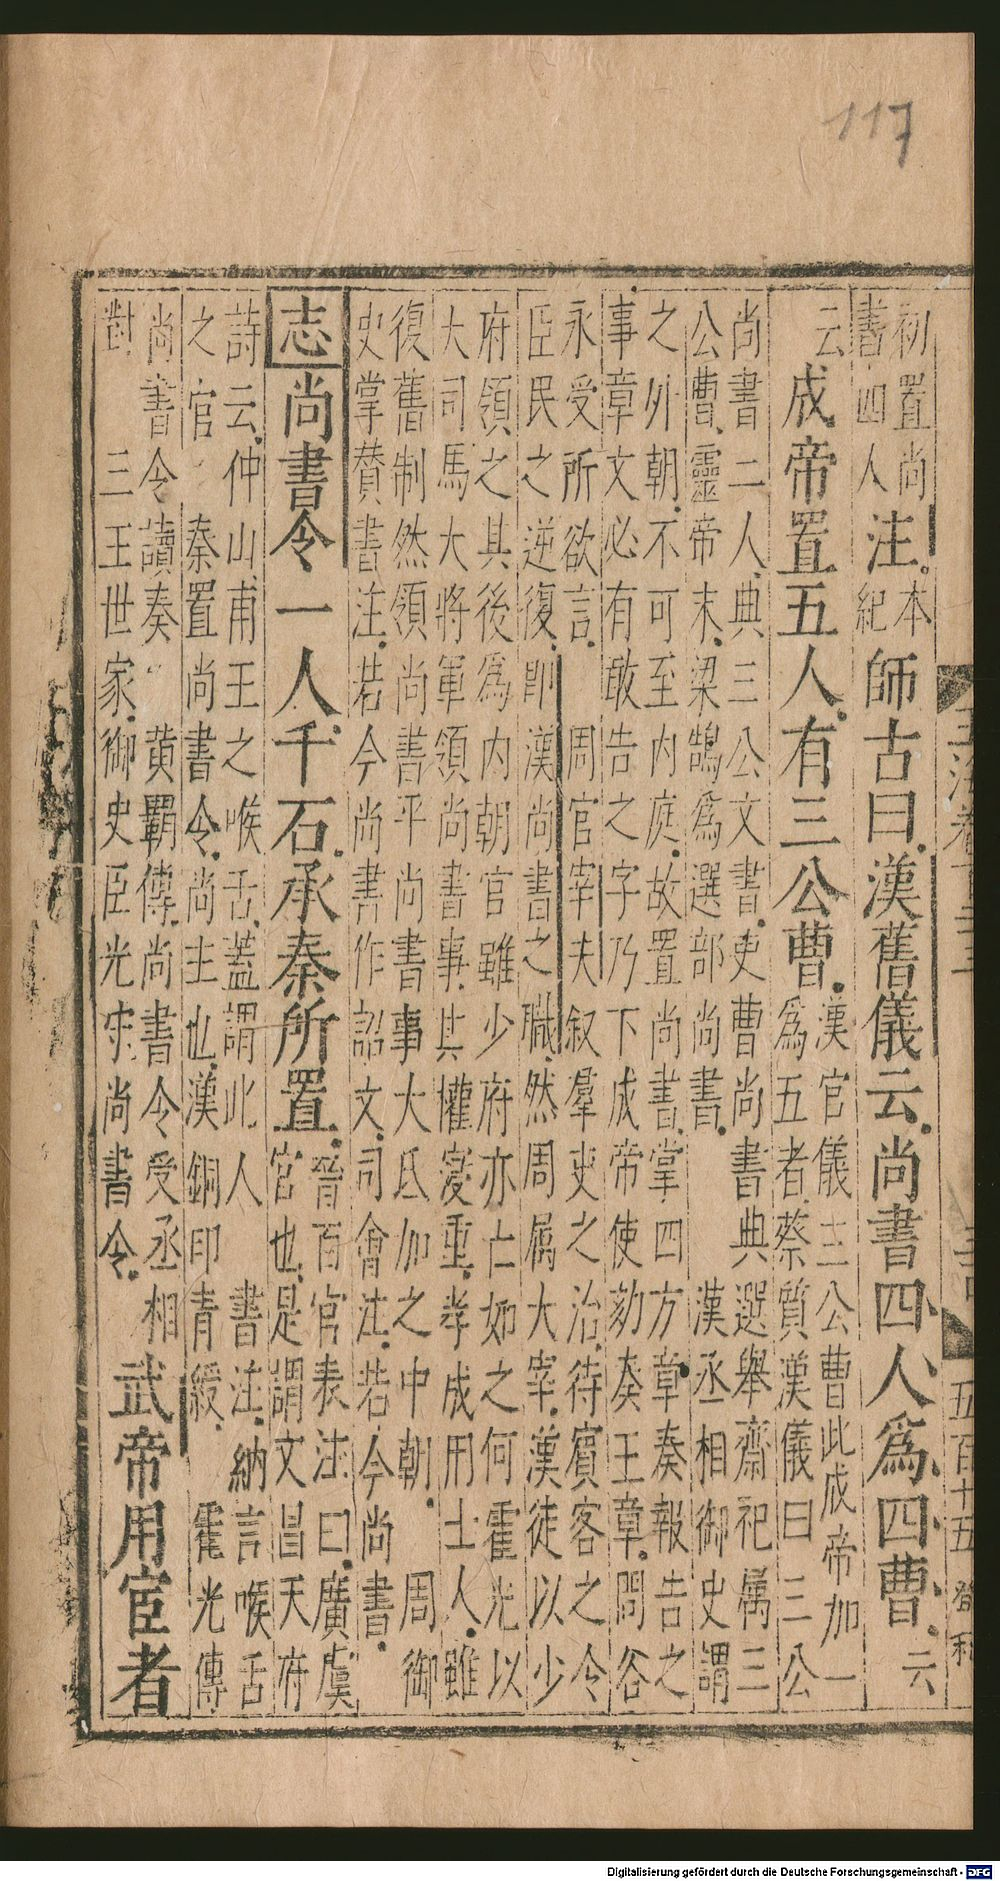 117
初置尚 本
書四人 注 紀 師古曰漢舊儀云尚書四人爲四曹云
云成帝置五人有三公曹 漢官儀三公曹此成帝加一
爲五者蔡質漢儀曰三公
尚書二人典三公文書吏曹尚書典選舉齋祀属三
公曹靈帝末梁鵠爲選部尚書 漢丞相御史謂
之外朝不可至内庭故置尚書掌四方章奏報告之
事章文必有敢告之字乃下成帝使劾奏王章問谷
永受所欲言 周官宰夫叙羣吏之治待賓客之令
臣民之逆復卽漢尚書之職然周属大宰漢徒以少
府領之其後爲内朝官雖少府亦亡如之何霍光以
大司馬大將軍領尚書事其權寖重孝成用士人雖
復舊制然領尚書平尚書事大氐加之中朝 周御
史掌賛書注若今尚書作詔文司會注若今尚書
志尚書令一人千石承秦所置 晉百官表注曰廣虞
官也是謂文昌天府
詩云仲山甫王之喉舌蓋謂此人 書注納言喉舌
之官 秦置尚書令尚主也漢銅印青綬 霍光傳
尚書令讀奏 黄霸傳尚書令受丞相
對 三王世家御史臣光守尚書令 武帝用宦者
五百十五
Digitalisierung gefördert durch die Deutsche Forschungsgemeinschaft - DFG